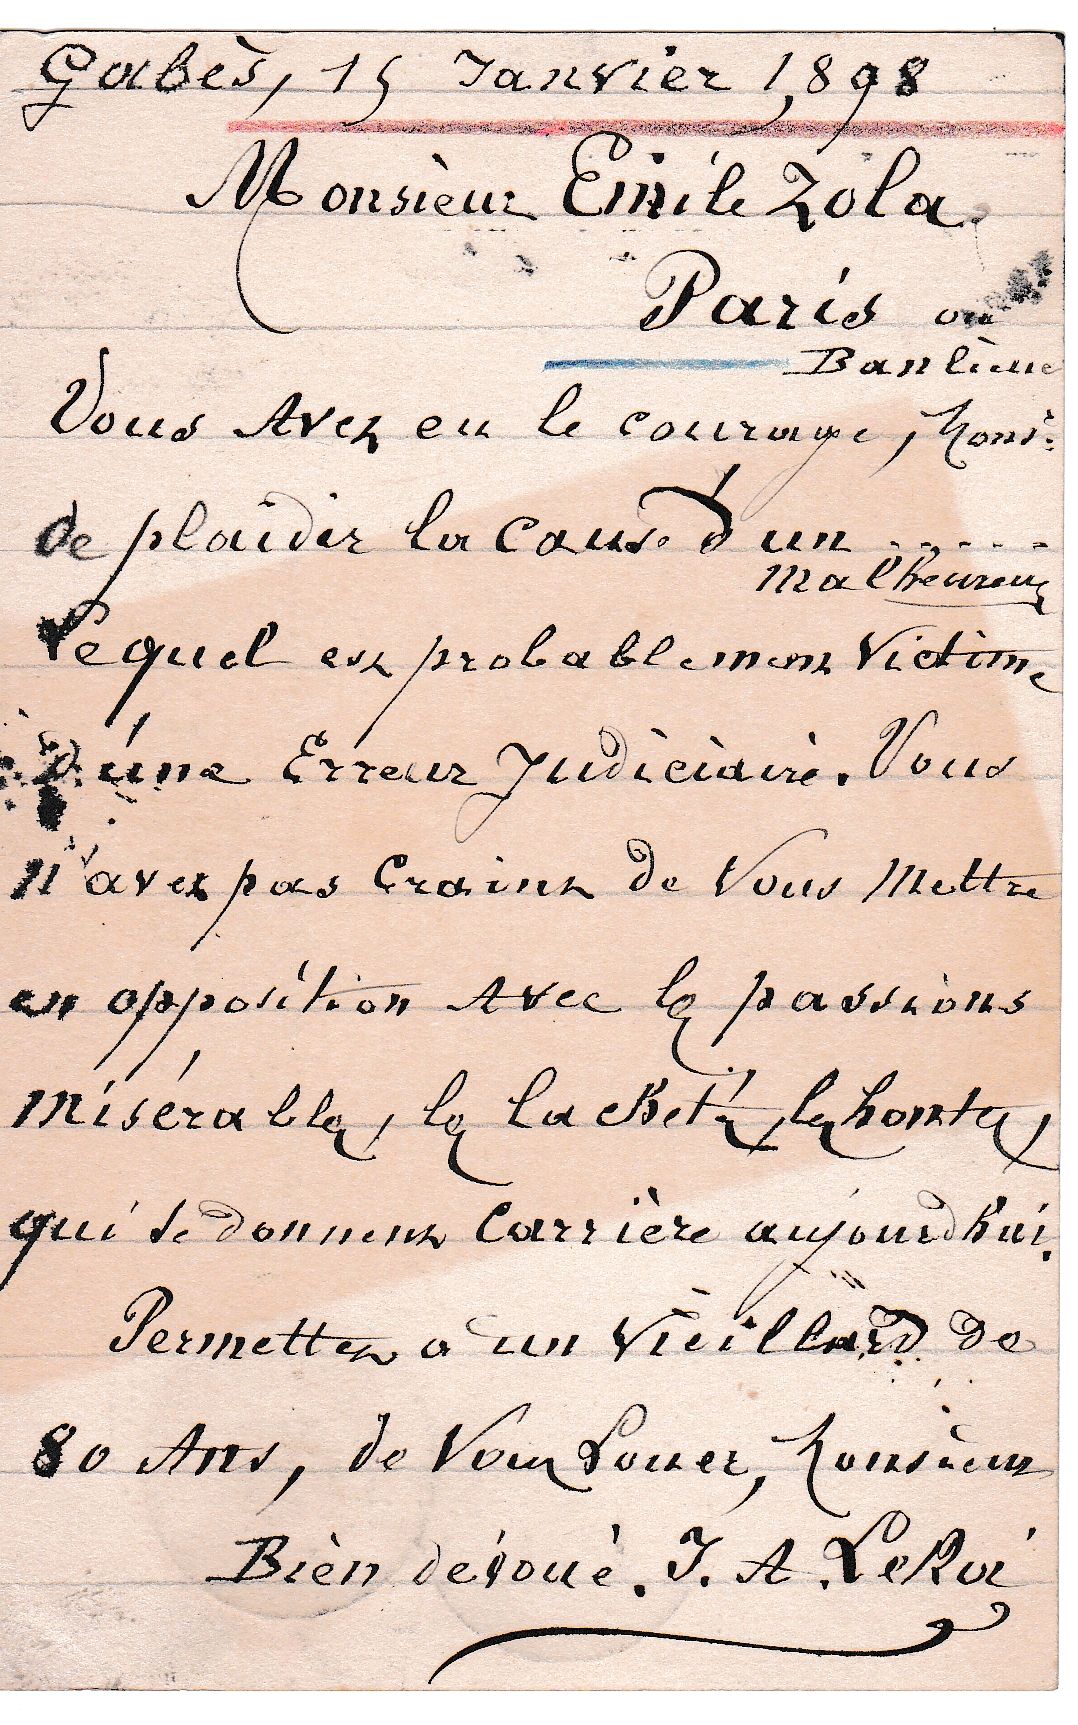 Gabès, 15 Janvier 1,898
Monsieur Emile Zola
Paris ou
Banlieue
Vous Avez eu le courage, Monsr.
de plaidir la cause d'un ......
Malheureux
Lequel est probablement Victime
d'une Erreur Judiciaire. Vous
n'avez pas Craint de Vous Mettre
en opposition Avec les passions
Misérables, les lachetés, les hontes,
qui se donnent Carrière aujourd'hui.
Permettez a un Vieillard de
80 Ans, de Vous Louer, Monsieur
Bien dévoué. J. A. LeRoi